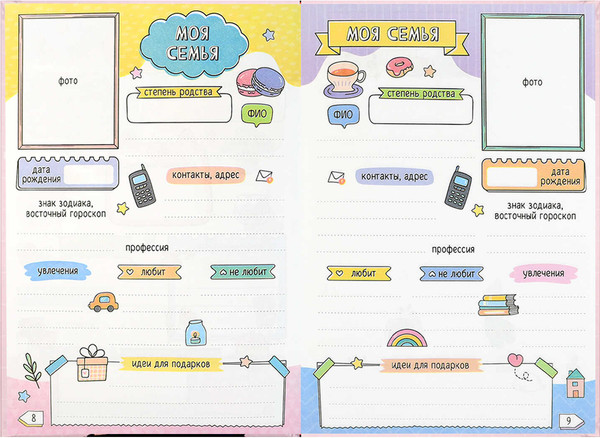 МОЯ
СЕМЬЯ
фото
степень родства
ФИО
дата
рождения
контакты, адрес
знак зодиака,
восточный гороскоп
профессия
увлечения
любит
не любит
идеи для подарков
8
МОЯ СЕМЬЯ
фото
степень родства
ФИО
контакты, адрес
дата
рождения
знак зодиака,
восточный гороскоп
профессия
любит
не любит
увлечения
идеи для подарков
9